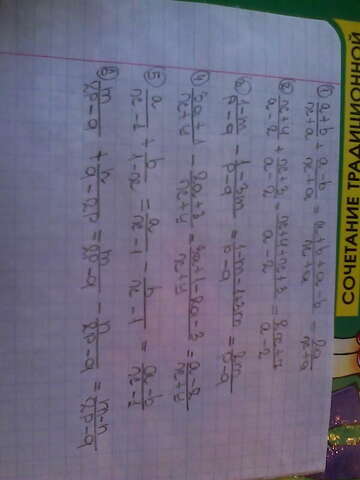 СОЧЕТАНИЕ ТРАДИЦИОННОЙ
① a+b/x+a + a-b/x+a = a+b+a-b/x+a = 2a/x+a
② x+4/a-2 + x+3/a-2 = x+4+x+3/a-2 = 2x+7/a-2
③ 1-m/p-q - 1-3m/p-q = 1-m-1+3m/p-q = 2m/p-q
④ 3a+1/x+y - 2a+3/x+y = 3a+1-2a-3/x+y = a-2/x+y
⑤ a/x-1 + b/1-x = a/x-1 - b/x-1 = a-b/x-1
⑥ m/2p-q + n/q-2p = m/2p-q - n/2p-q = m-n/2p-q